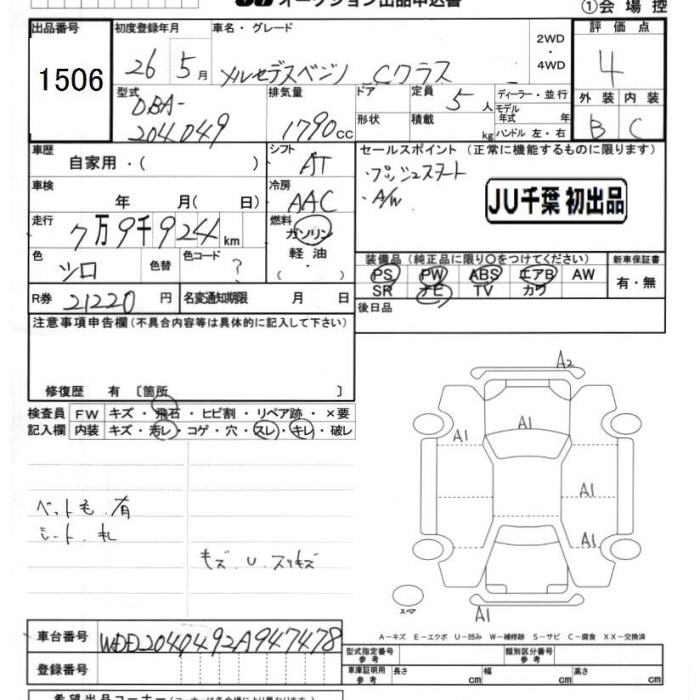 オークション出品申込書
①会場控
出品番号 初度登録年月 車名・グレード 2WD・4WD 評価点
1506
26 5月 メルセデスベンツ Cクラス 4
型式 排気量 ドア 定員 5人 ディーラー・並行 外装 内装
DBA-204049 1790cc 形状 積載 kg モデル年式 年 ハンドル 左・右 B C
車歴 シフト セールスポイント (正常に機能するものに限ります)
自家用・( ) AT ・プッシュスタート
車検 冷房 ・A/W
年 月( 日) AAC JU千葉 初出品
走行 燃料
7万9千924km ガソリン
色 色替 色コード 軽油 装備品 (純正品に限り○をつけてください) 新車保証書
シロ ? ・ PS PW ABS エアB AW 有・無
SR ナビ TV カワ
R券 21220円 名変通知期限 月 日 後日品
注意事項申告欄(不具合内容等は具体的に記入して下さい)
修復歴 有 〔箇所 〕
検査員 FW キズ・飛石・ヒビ割・リペア跡・×要
記入欄 内装 キズ・汚レ・コゲ・穴・スレ・キレ・破レ
A2
A1
A1
A1
A1
A1
ペット毛.有
シート.キレ
キズ.U.スリキズ
スペア
A−キズ E−エクボ U−凹み W−補修跡 S−サビ C−腐食 XX−交換済
車台番号 WDD2040492A947478
型式指定番号 参考 類別区分番号 参考
登録番号
車庫証明用 参考 長さ cm 幅 cm 高さ cm
希望出品コーナー